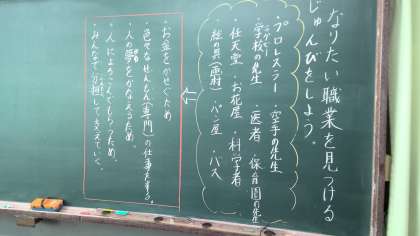 なりたい職業を見つける
じゅんびをしよう。
・プロレスラー ・空手の先生
・学校の先生 ・医者 ・保育園の先生
・任天堂 ・お花屋 ・科学者
・絵の具(画材) ・パン屋 ・バス
・お金をかせぐため
色々なせんもん(専門)の仕事をする。
・人の夢をかなえるため。
・人によろこんでもらうため。
・みんなで分担して支えていく。